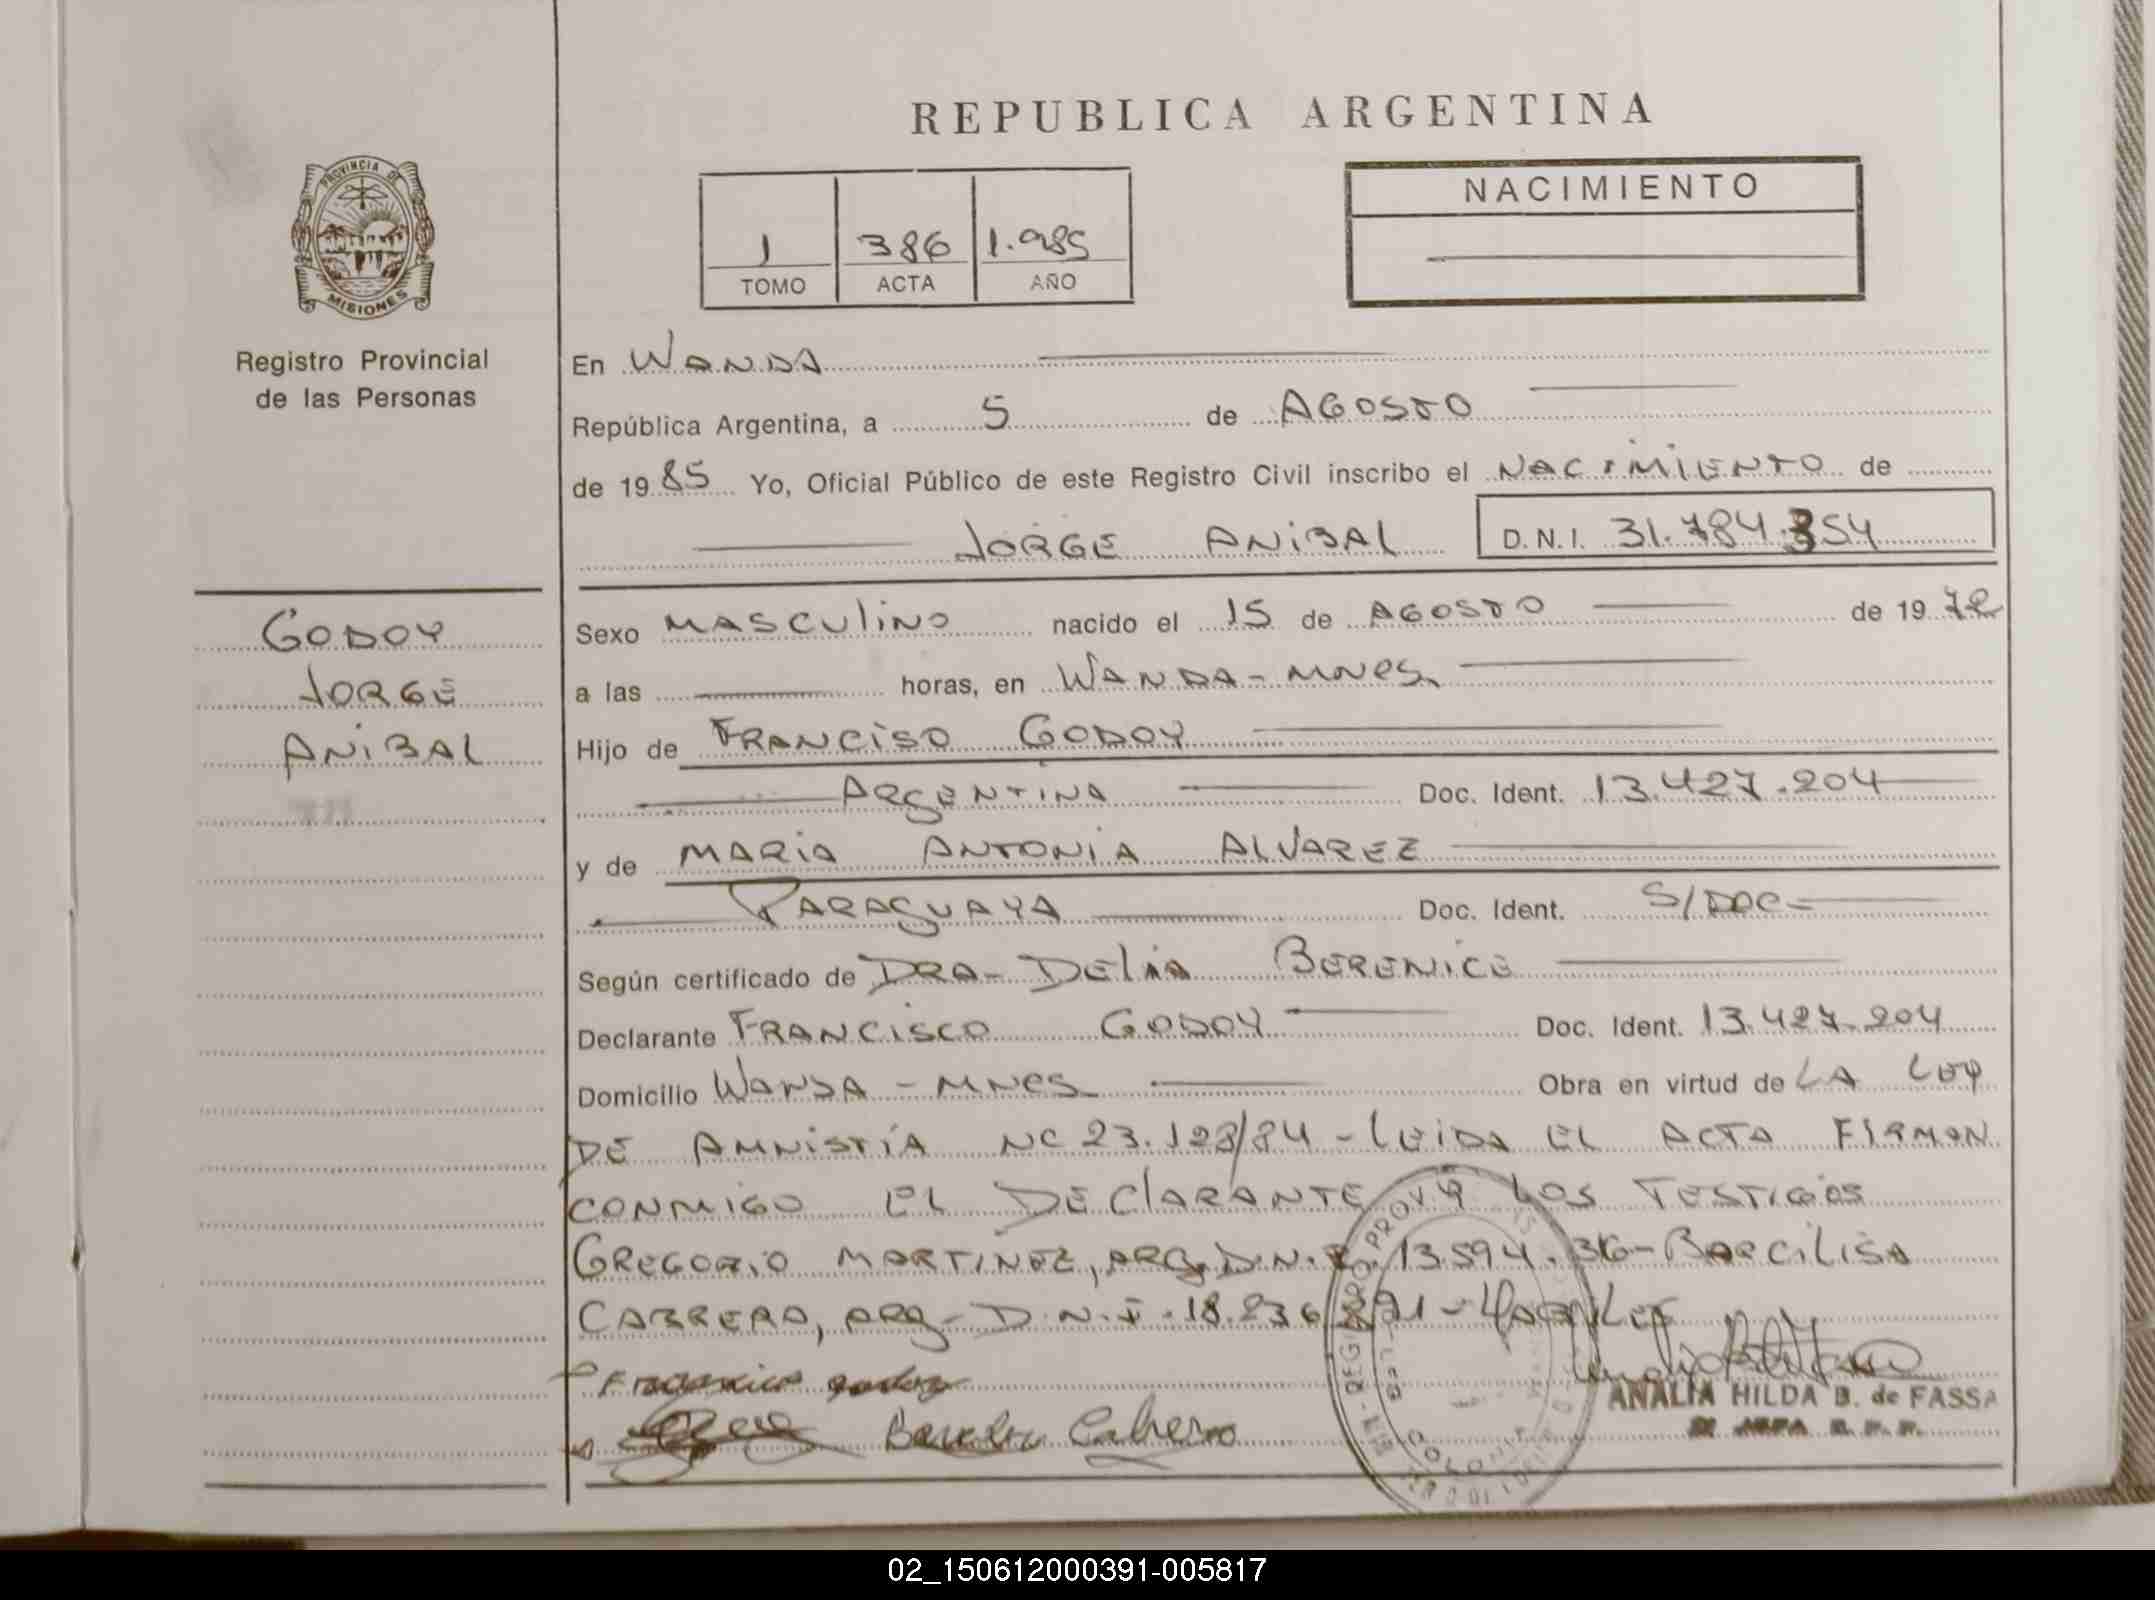 REPUBLICA ARGENTINA
PROVINCIA DE
MISIONES
Registro Provincial
de las Personas
1 386 1.985
TOMO ACTA AÑO
NACIMIENTO
En WANDA
República Argentina, a 5 de AGOSTO
de 1985 Yo, Oficial Público de este Registro Civil inscribo el NACIMIENTO de
JORGE ANIBAL D.N.I. 31.784.354
GODOY
JORGE
ANIBAL
Sexo MASCULINO nacido el 15 de AGOSTO de 1972
a las horas, en WANDA - MNES.
Hijo de FRANCISO GODOY
ARGENTINA Doc. Ident. 13.427.204
y de MARIA ANTONIA ALVAREZ
PARAGUAYA Doc. Ident. S/DOC-
Según certificado de DRA- DELIA BERENICE
Declarante FRANCISCO GODOY Doc. Ident. 13.427.204
Domicilio WANDA - MNES Obra en virtud de LA LEY
DE AMNISTÍA NC 23.128/84 - LEIDA EL ACTA FIRMAN
CONMIGO EL DECLARANTE Y LOS TESTIGOS
GREGORIO MARTINEZ, ARG. D.N.I. 13.594.36- BARCILISA
CABRERA, ARG- D.N.I. 18.236
ANALIA HILDA B. de FASSA
02_150612000391-005817